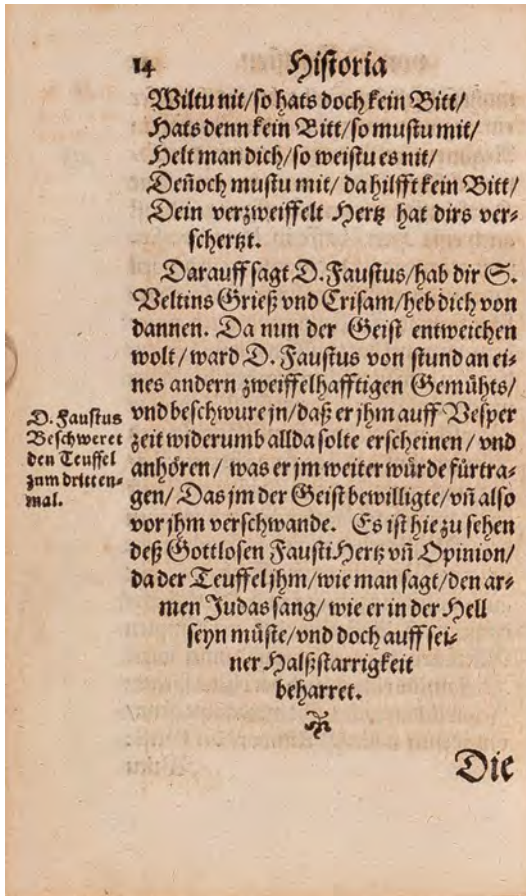 14 Historia
Wiltu nit/so hats doch kein Bitt/
Hats denn kein Bitt/so mustu mit/
Helt man dich/so weistu es nit/
Deñoch mustu mit/ da hilfft kein Bitt/
Dein verzweiffelt Hertz hat dirs ver-
schertzt.
Darauff sagt D. Faustus/hab dir S.
Veltins Grieß vnd Crisam/heb dich von
dannen. Da nun der Geist entweichen
wolt/ward D. Faustus von stund an ei-
nes andern zweiffelhafftigen Gemühts/
vnd beschwure jn/daß er jhm auff Vesper
zeit widerumb allda solte erscheinen / vnd
anhören / was er jm weiter würde fürtra-
gen/ Das jm der Geist bewilligte/vñ also
vor jhm verschwande. Es ist hie zu sehen
deß Gottlosen Fausti Hertz vñ Opinion/
da der Teuffel jhm/wie man sagt/den ar-
men Judas sang/ wie er in der Hell
seyn müste/vnd doch auff sei-
ner Halßstarrigkeit
beharret.
D. Faustus
Beschweret
den Teuffel
zum dritten-
mal.
Die